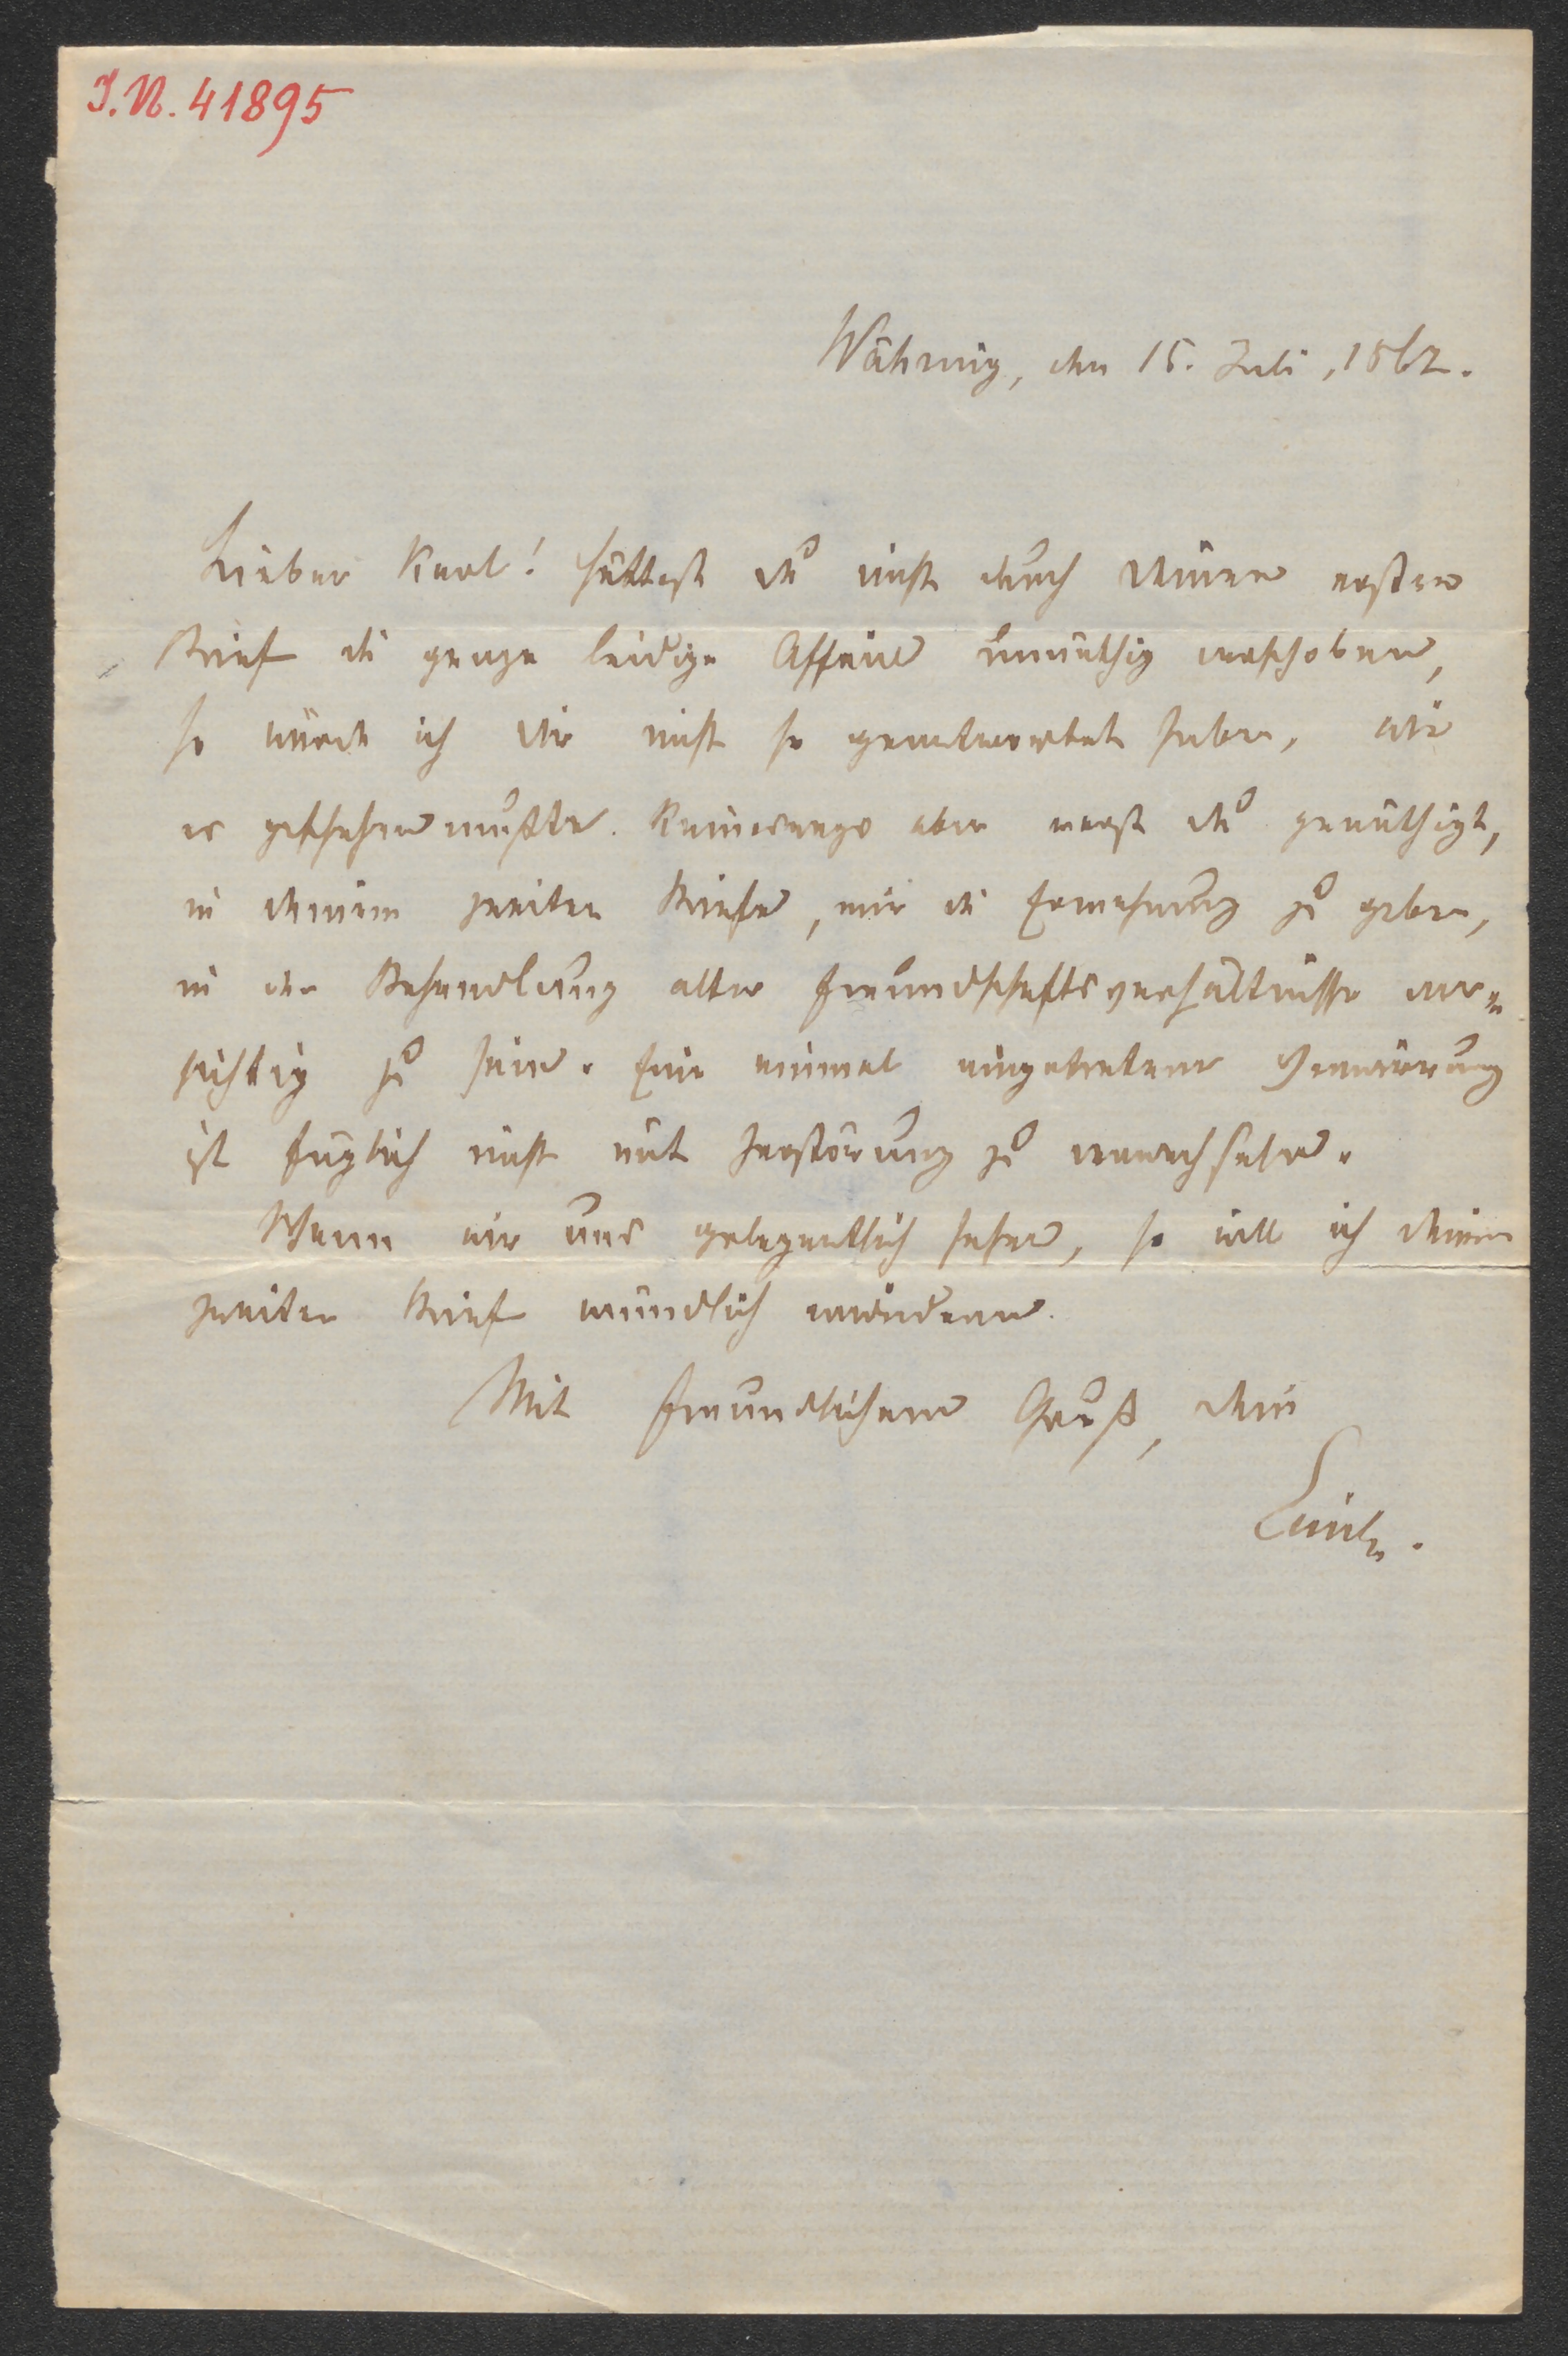 J. N. 41895
Währing, den 15. Juli, 1862.
Lieber Karl! Hättest du nicht durch deinen ersten
Brief die ganze leidige Affaire unnöthig verschoben,
so würde ich dir nicht so geantwortet haben, wie
es geschehen mußte. Keineswegs aber warst du genöthigt,
in deinem zweiten Briefe, mir die Ermahnung zu geben,
in der Behandlung alter Freundschaftsverhältnisse vor-
sichtig zu sein. Eine einmal eingetretene Verwirrung
ist füglich nicht mit Zerstörung zu verwechseln.
Wenn wir uns gelegentlich sehen, so will ich deinen
zweiten Brief mündlich erwidern.
Mit freundlichem Gruß, dein